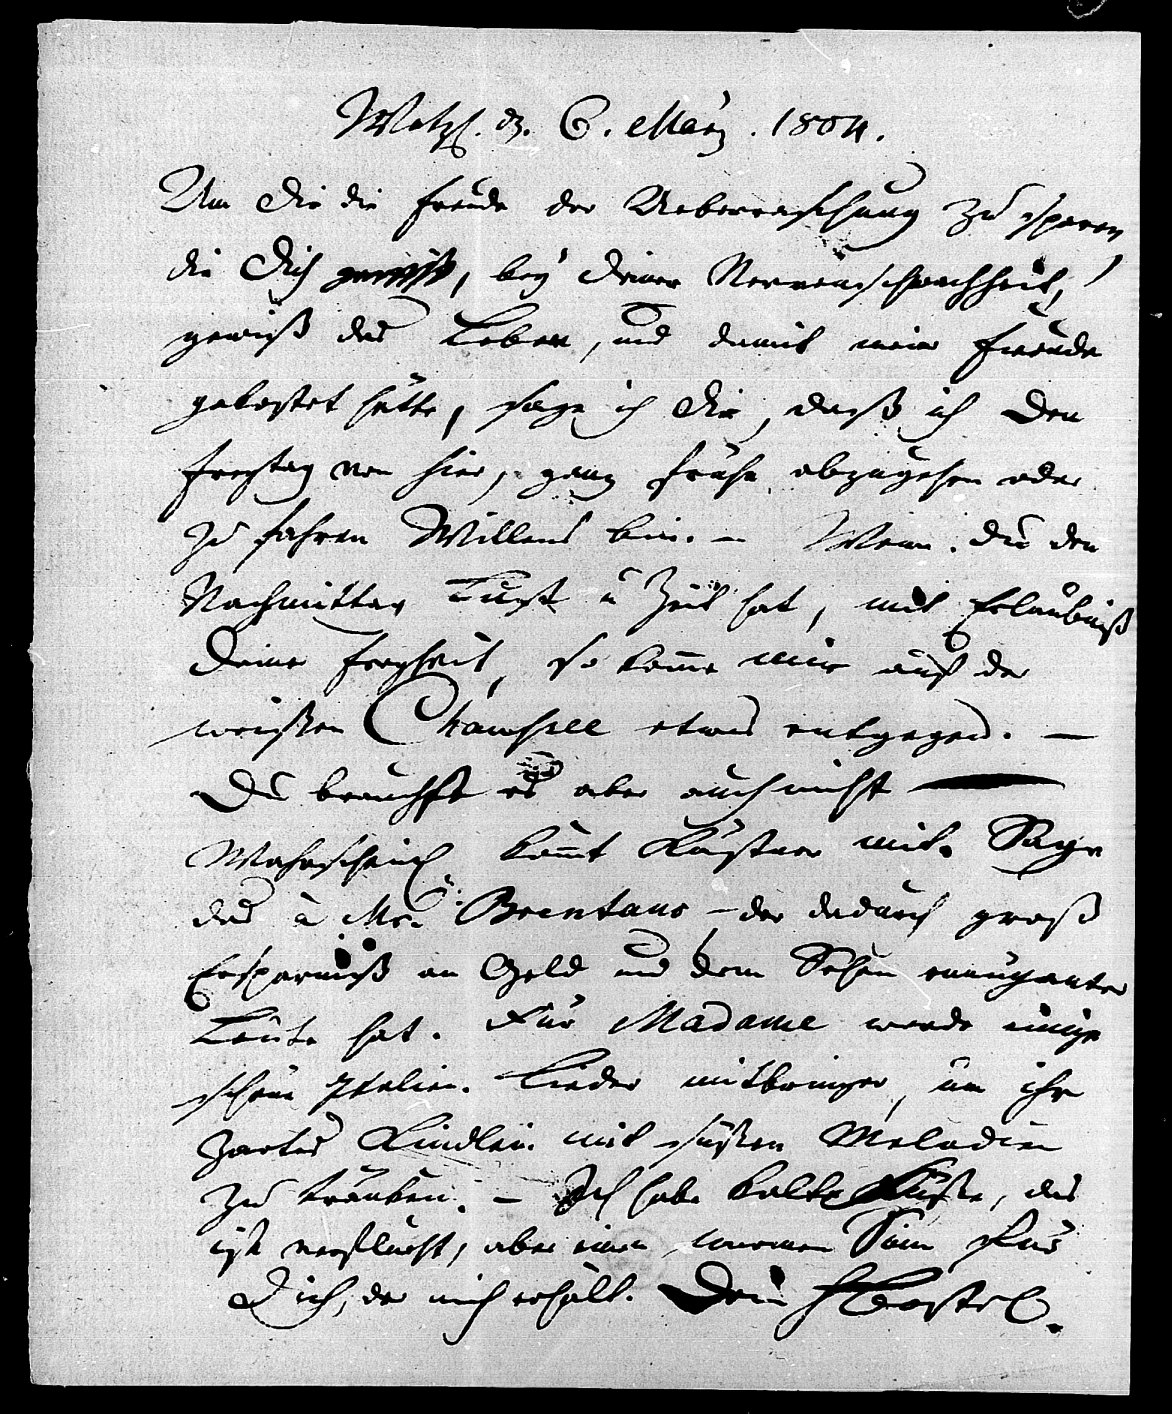 Wetzl. d. 6. März. 1804.
Um Dir die Freude der Ueberraschung zu sparen
die Dich, bey Deiner Nervenschwachheit,
gewiß das Leben, und damit meine Freude
gekostet hätte, sage ich Dir, daß ich den
Freytag von hier, ganz frühe abzugehen oder
zu fahren Willens bin. – Wenn Du den
Nachmittag Lust u Zeit hat, mit Erlaubniß
Deiner Freyheit, so kome mir auf der
weißen Chaussee etwas entgegen. —
Du brauchst es aber auch nicht —
Wahrscheinl. kömt Kästner mit. Sage
das à Mr. Brentano – der dadurch groß
Ersparniß an Geld und dem Sehen ennuyanter
Leute hat. Für Madame werde einige
schöne Italien. Lieder mitbringen, um ihr
zartes Kindlein mit süßen Melodien
zu tränken. – Ich habe kalte Füße, das
ist verflucht, aber einen warmen Sinn für
Dich, der mich erhält. Dein HBostel.